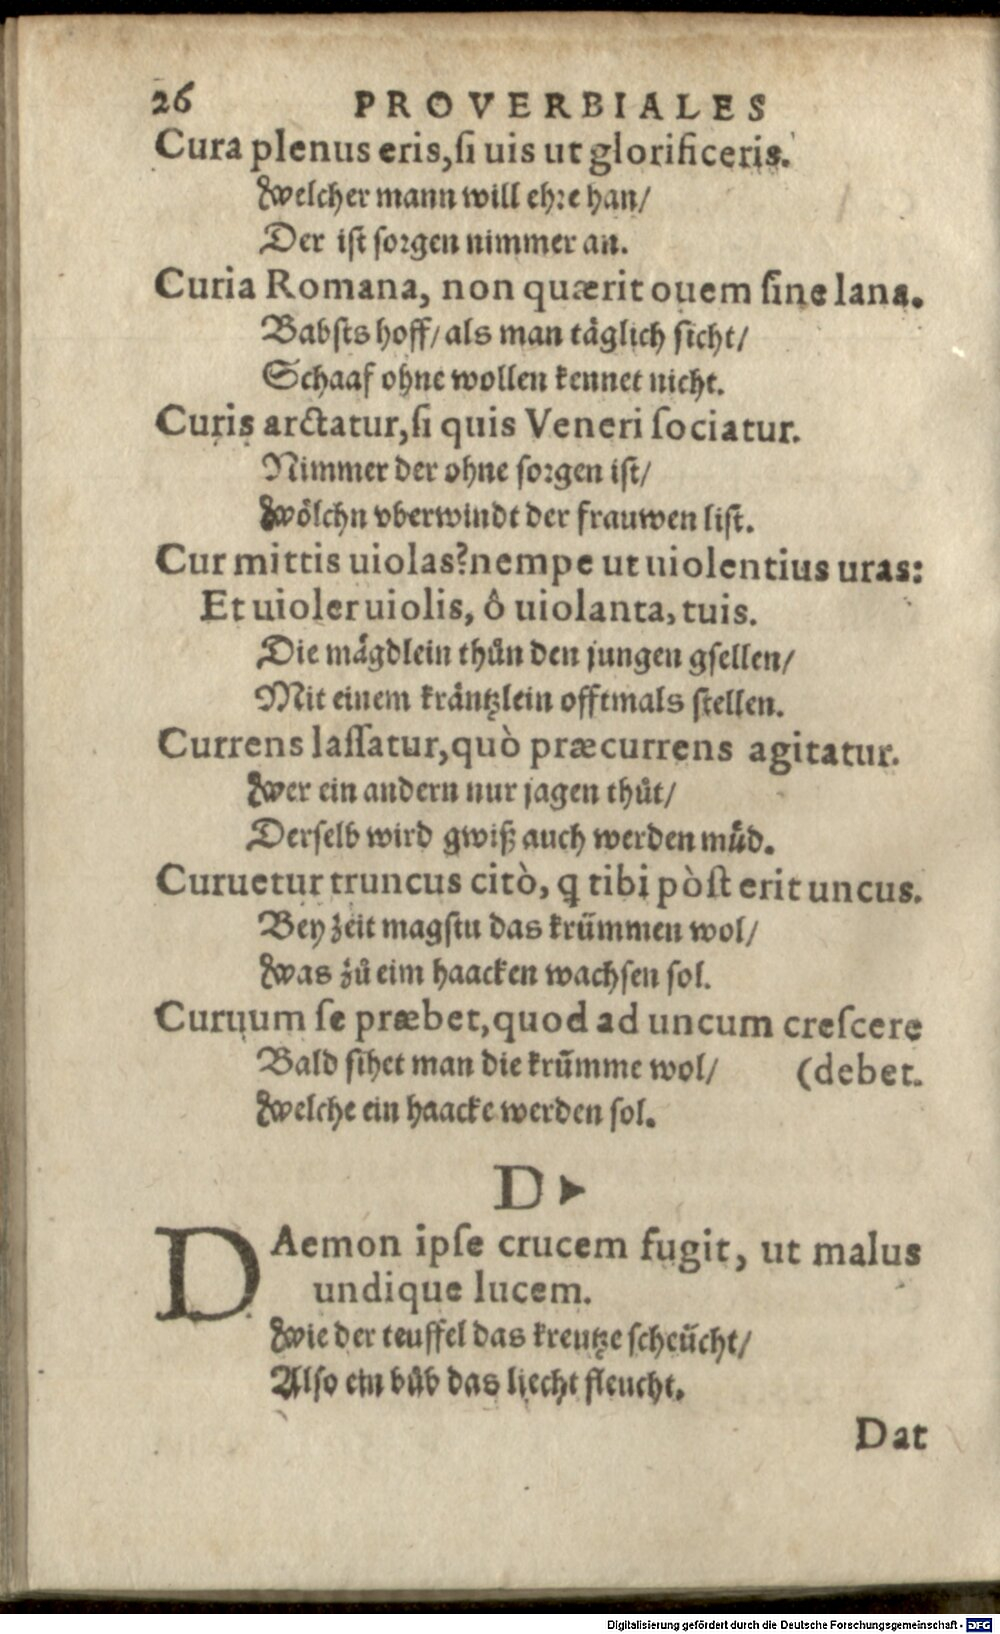 26 PROVERBIALES
Cura plenus eris, ſi uis ut glorificeris.
Welcher mann will ehꝛe han/
Der iſt ſoꝛgen nimmer an.
Curia Romana, non quærit ouem ſine lana.
Babſts hoff/ als man täglich ſicht/
Schaaf ohne wollen kennet nicht.
Curis arctatur, ſi quis Veneri ſociatur.
Nimmer der ohne ſoꝛgen iſt/
Wölchn vberwindt der frauwen liſt.
Cur mittis uiolas? nempe ut uiolentius uras:
Et uioler uiolis, ô uiolanta, tuis.
Die mägdlein thůn den jungen gſellen/
Mit einem kräntzlein offtmals ſtellen.
Currens laſſatur, quò præcurrens agitatur.
Wer ein andern nur jagen thůt/
Derſelb wird gwiß auch werden müd.
Curuetur truncus citò, ꝗ tibi pòſt erit uncus.
Bey zeit magſtu das krümmen wol/
Was zů eim haacken wachſen ſol.
Curuum ſe præbet, quod ad uncum creſcere
Bald ſihet man die krümme wol/ (debet.
Welche ein haacke werden ſol.
D
DAemon ipſe crucem fugit, ut malus
undique lucem.
Wie der teuffel das kreutze ſcheücht/
Alſo ein bůb das liecht fleucht.
Dat
Digitalisierung gefördert durch die Deutsche Forschungsgemeinschaft - DFG